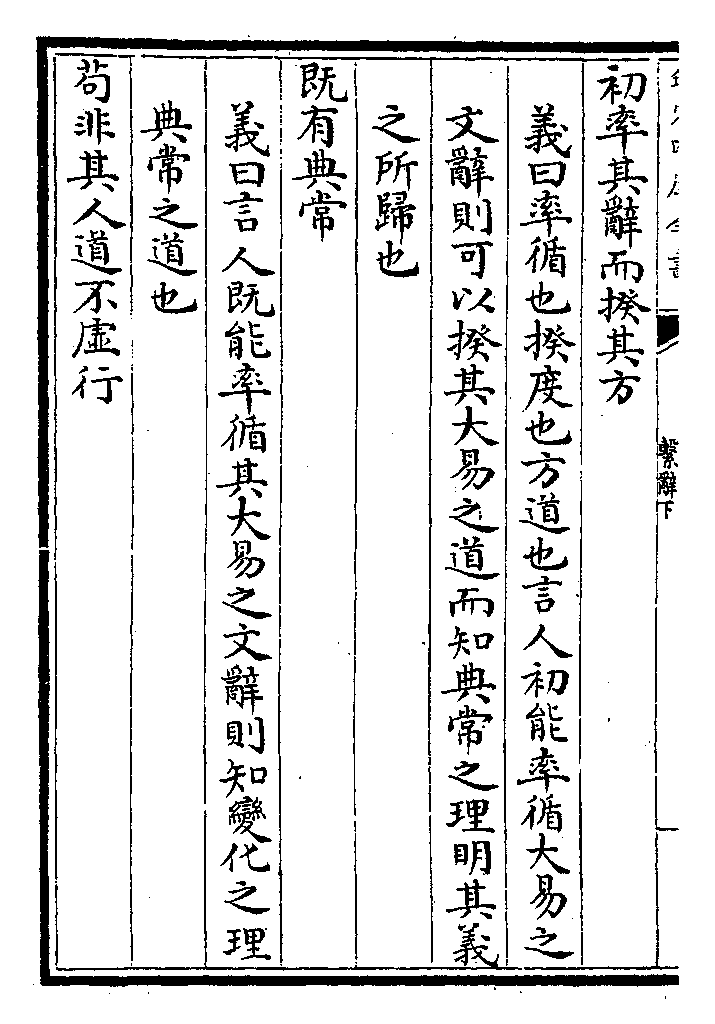 欽定四庫全書
繫辭下
初率其辭而揆其方
義曰率循也揆度也方道也言人初能率循大易之
文辭則可以揆其大易之道而知典常之理明其義
之所歸也
既有典常
義曰言人既能率循其大易之文辭則知變化之理
典常之道也
苟非其人道不虛行